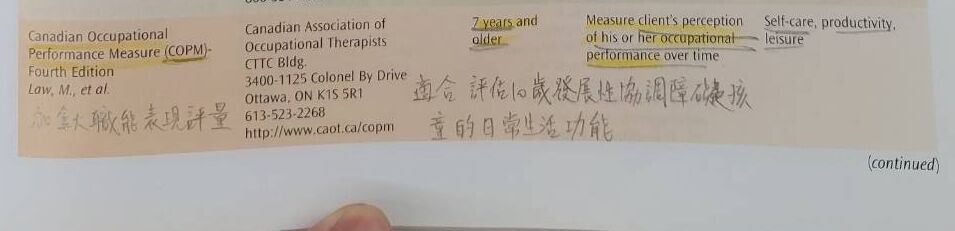 Canadian Occupational
Performance Measure (COPM)-
Fourth Edition
Law, M., et al.
加拿大職能表現評量
Canadian Association of
Occupational Therapists
CTTC Bldg.
3400-1125 Colonel By Drive
Ottawa, ON K1S 5R1
613-523-2268
http://www.caot.ca/copm
7 years and
older
Measure client's perception
of his or her occupational
performance over time
Self-care, productivity,
leisure
適合評估10歲發展性協調障礙孩
童的日常生活功能
(continued)